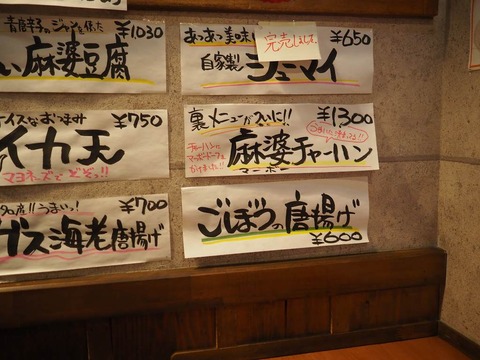 青唐辛子のジャンを使った
¥1030
い麻婆豆腐
イスなおつまみ
¥750
イカ天
マヨネーズでどぞう!!
名産!!うまいっ!
¥700
ガス海老唐揚げ
あつあつ美味し
完売しました。
¥650
自家製
シューマイ
裏メニューがついに!!
¥1300
チャーハンに
マーボードーフを
かけました!!
麻婆チャーハン
マーボー
ごぼうの唐揚げ
¥600